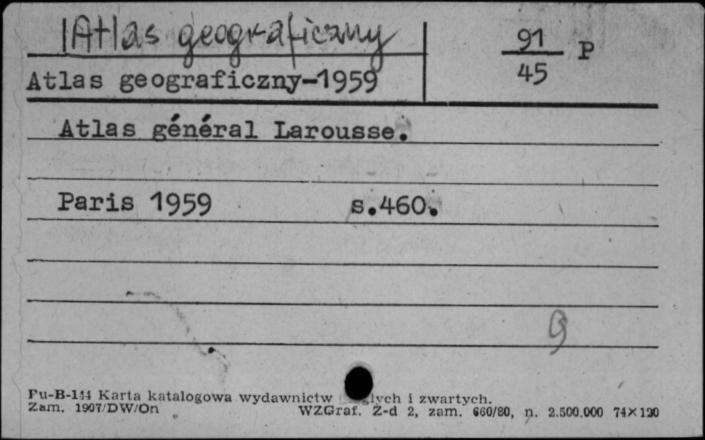 Atlas geograficzny
91
45 P
Atlas geograficzny-1959
Atlas général Larousse.
Paris 1959 s.460.
Pu-B-144 Karta katalogowa wydawnictw i zwartych.
Zam. 1907/DW/On WZGraf. Z-d 2, zam. 660/80, n. 2.500.000 74×120